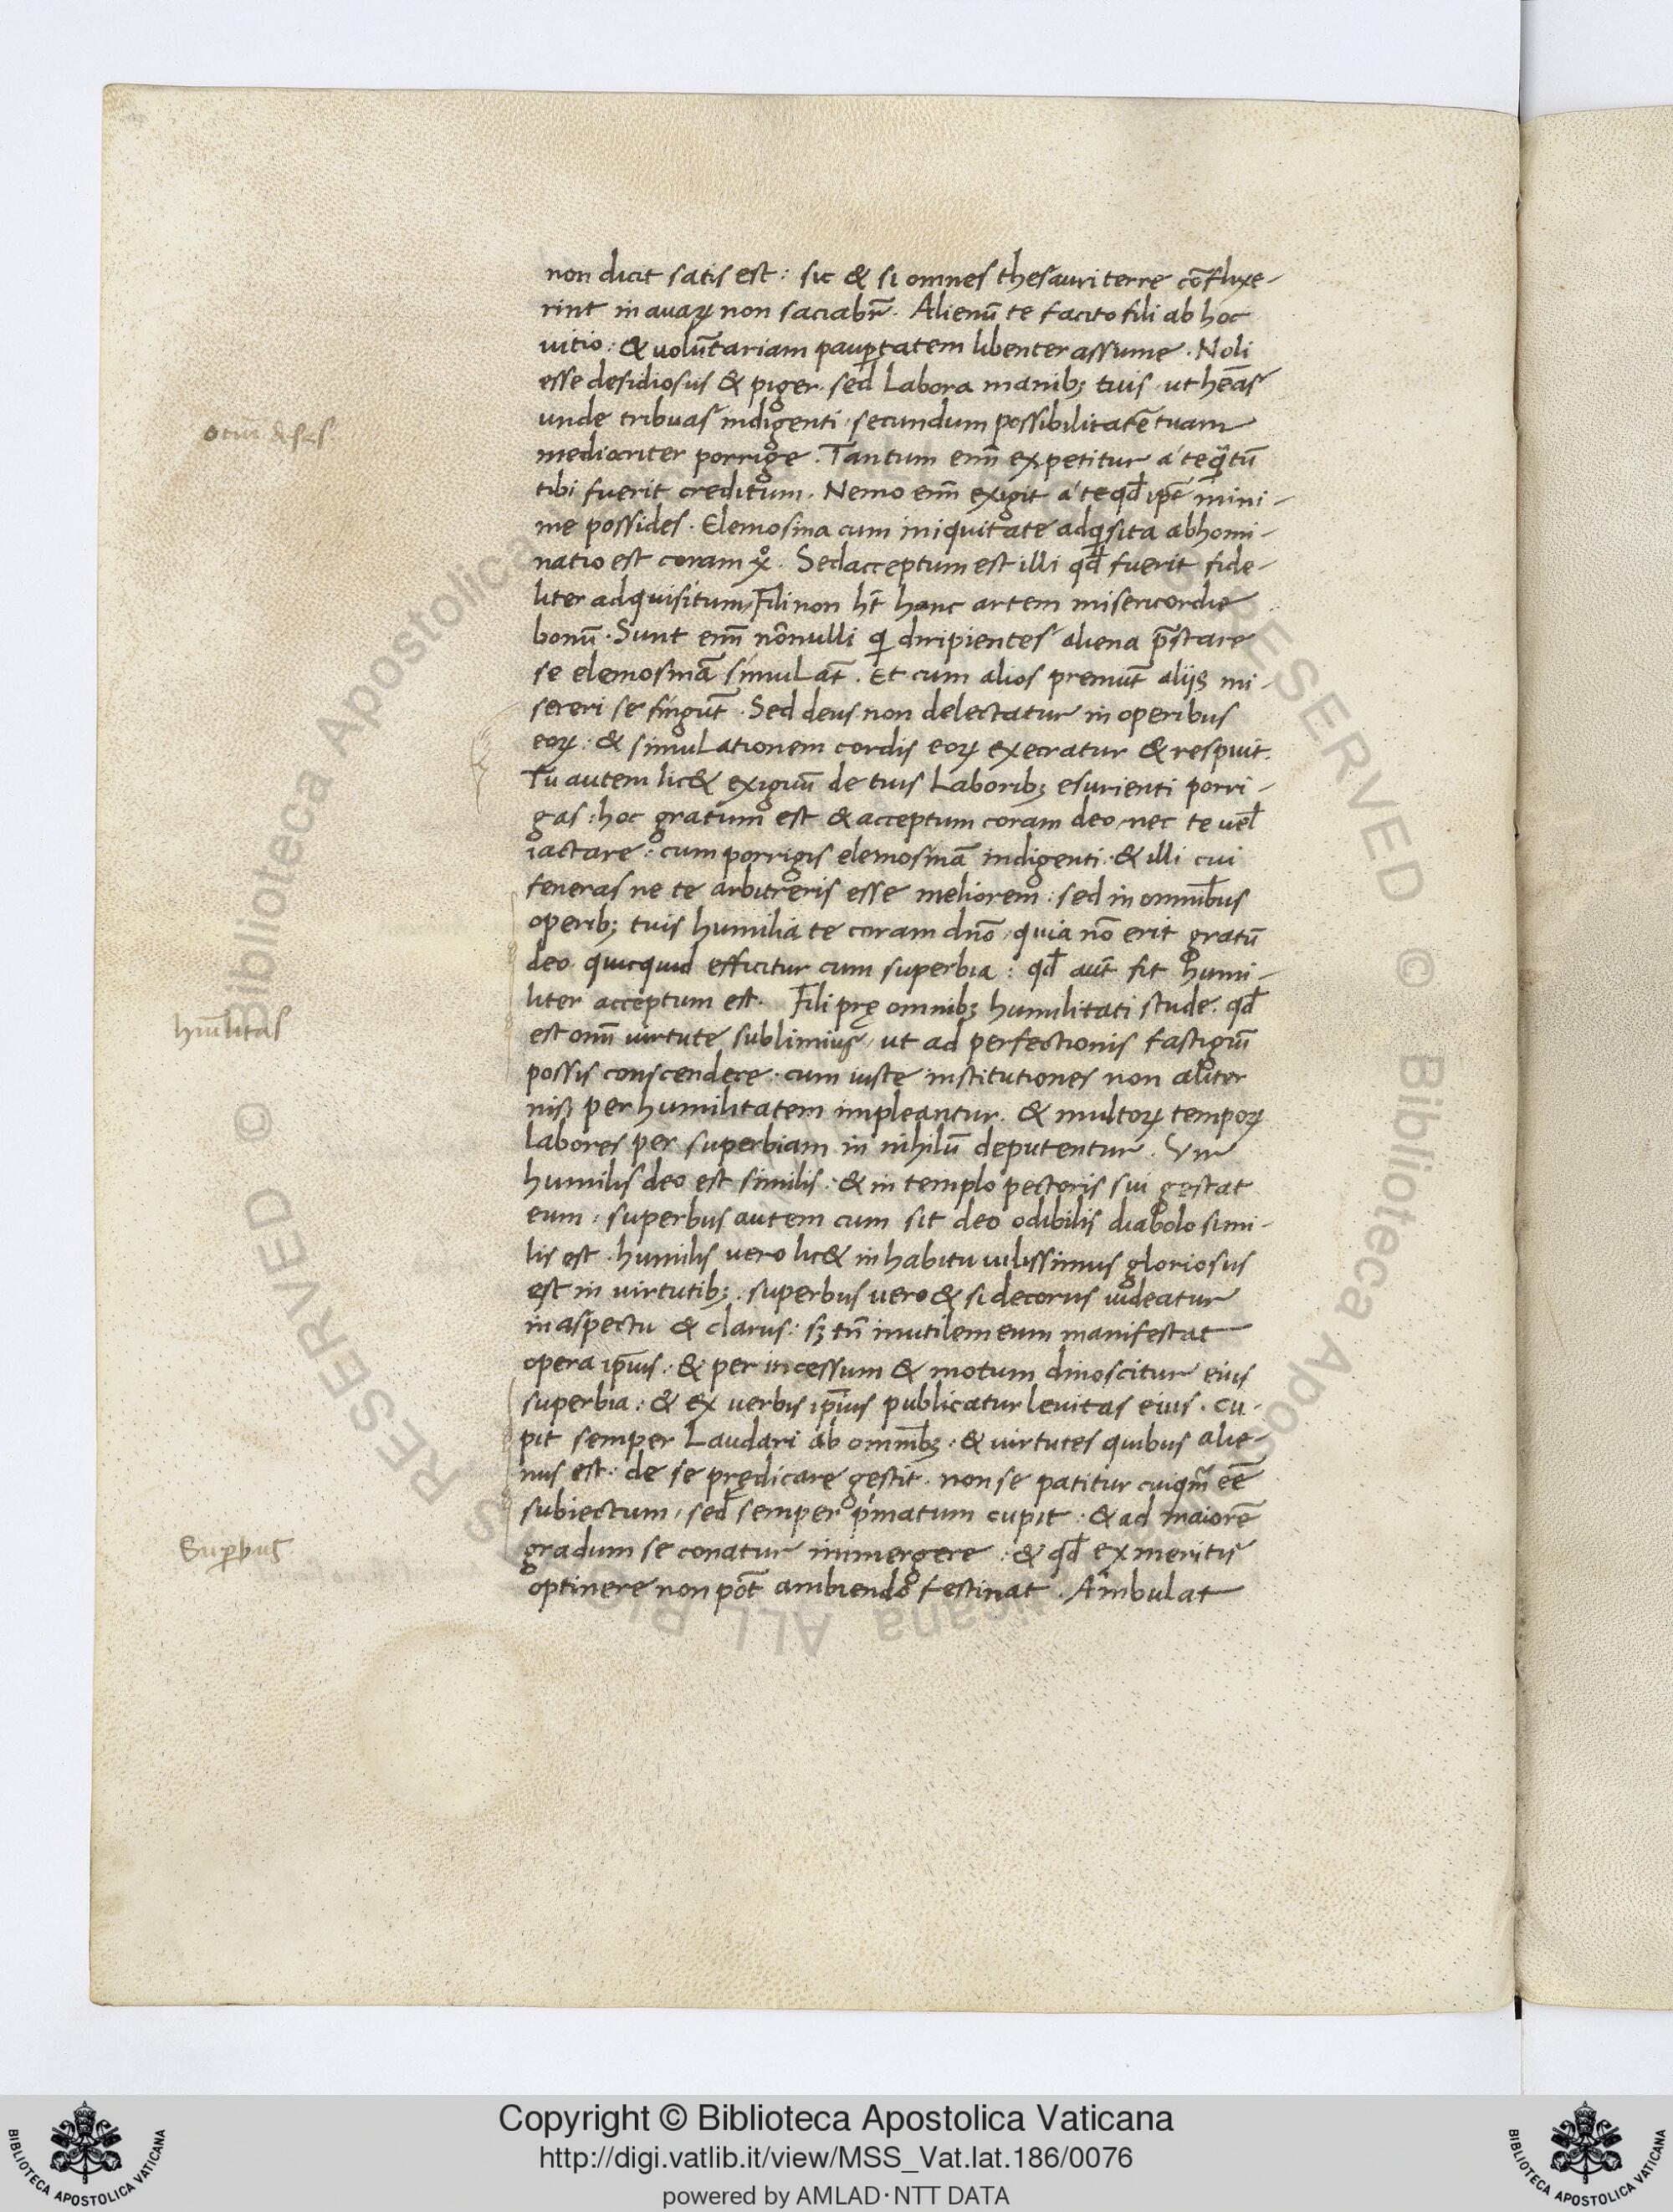 non dicit satis est: sic & si omnes thesauri terre cōfluxe-
rint in auaꝝ non saciabr̄. Alienū te facito fili ab hoc
uitio: & uolūtariam paup̄tatem libenter assume. Noli
esse desidiosus & piger. sed labora manib; tuis ut hēas
unde tribuas indigenti. secundum possibilitatē tuam
otiū
mediocriter porrige. Tantum enī expetitur á te q̄tū
tibi fuerit creditum. Nemo enī exigit á te qd̄ ip̄e mini-
me possides. Elemosina cum iniquitate adq̇sita abhomi-
natio est coram xo̊. Sed acceptum est illi qd̄ fuerit fide-
liter adquisitum, Fili non ht̄ hanc artem misericordie
bonū. Sunt enī nōnulli qi diripientes aliena p̄stare
se elemosinā simulāt. Et cum alios premūt aliis mi-
sereri se fingūt. Sed deus non delectatur in operibus
eoꝝ: & simulationem cordis eoꝝ execratur & respuit.
Tu autem lic& exiguū de tuis laborib; esurienti porri-
gas: hoc gratum est & acceptum coram deo, nec te uel̄
iactare: cum porrigis elemosinā indigenti. & illi cui
feneras ne te arbitreris esse meliorem: sed in omnibus
operib; tuis humilia te coram dn̄o, quia nō erit gratū
deo quicquid efficitur cum superbia: qd̄ aūt fit humi-
liter acceptum est. Fili prę omnib; humilitati stude. qd̄
hūilitas
est omī uirtute sublimius, ut ad perfectionis fastigiū
possis conscendere. cum iuste institutiones non aliter
nisi per humilitatem impleantur. & multoꝝ tempoꝝ
labores per superbiam in nihilū deputentur. Vir
humilis deo est similis: & in templo pectoris sui gestat
eum: superbus autem cum sit deo odibilis diabolo simi-
lis est. humilis uero lic& in habitu uilissimus gloriosus
est in uirtutib;. superbus uero & si decorus uideatur
in aspectu & clarus: s; tn̄ inutilem eum manifestat
opera ip̄ius: & per incessum & motum dinoscitur eius
superbia: & ex uerbis ip̄ius publicatur leuitas eius. cu-
pit semper laudari ab omnib;: & uirtutes quibus alie-
nus est: de se prędicare gestit. non se patitur cuiqm̄ eē
subiectum, sed semper p̄matum cupit: & ad maiorē
Sup̄bus
gradum se conatur inmergere: & qd̄ ex meritis
optinere non pōt ambiendo festinat. Ambulat
Copyright © Biblioteca Apostolica Vaticana
http://digi.vatlib.it/view/MSS_Vat.lat.186/0076
powered by AMLAD·NTT DATA
BIBLIOTECA APOSTOLICA VATICANA
BIBLIOTECA APOSTOLICA VATICANA